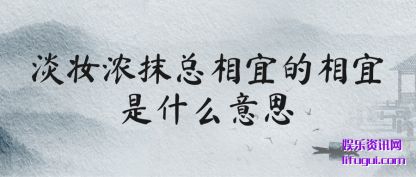 淡妆浓抹总相宜的相宜
是什么意思
娱乐资讯网
lifugui.com